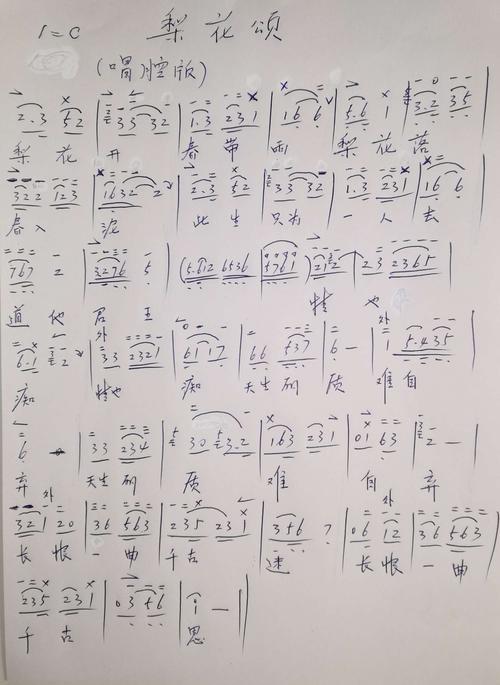 1=C 梨花頌
(唱腔版)
2.3 52 | 33 32 | 1.3 231 | 16 6 | 5.6 1 | 3.2 35
梨 花 开 春 带 雨 梨 花 落
322 123 | 1632 2 | 2.3 52 | 33 32 | 1.3 231 | 16 6
春 入 泥 此 生 只为 一 人 去
767 2 | 3276 5 | (5.612 6536 | 5761) 212 | 23 2365 |
道 他 君 王 情 也
6.1 2 | 33 2321 | 61 17 | 66 537 | 6 - | 1 5.435 |
痴 情也 痴 天生 丽 质 难 自
6 - | 33 234 | 30 3.2 | 163 231 | 01 63 | 2 — |
弃 天生 丽 质 难 自 弃
321 20 | 36 563 | 235 231 | 356 ? | 06 12 | 36 563 |
长 恨 一 曲 千古 迷 长恨 一 曲
235 231 | 03 56 | 1 — ||
千 古 思